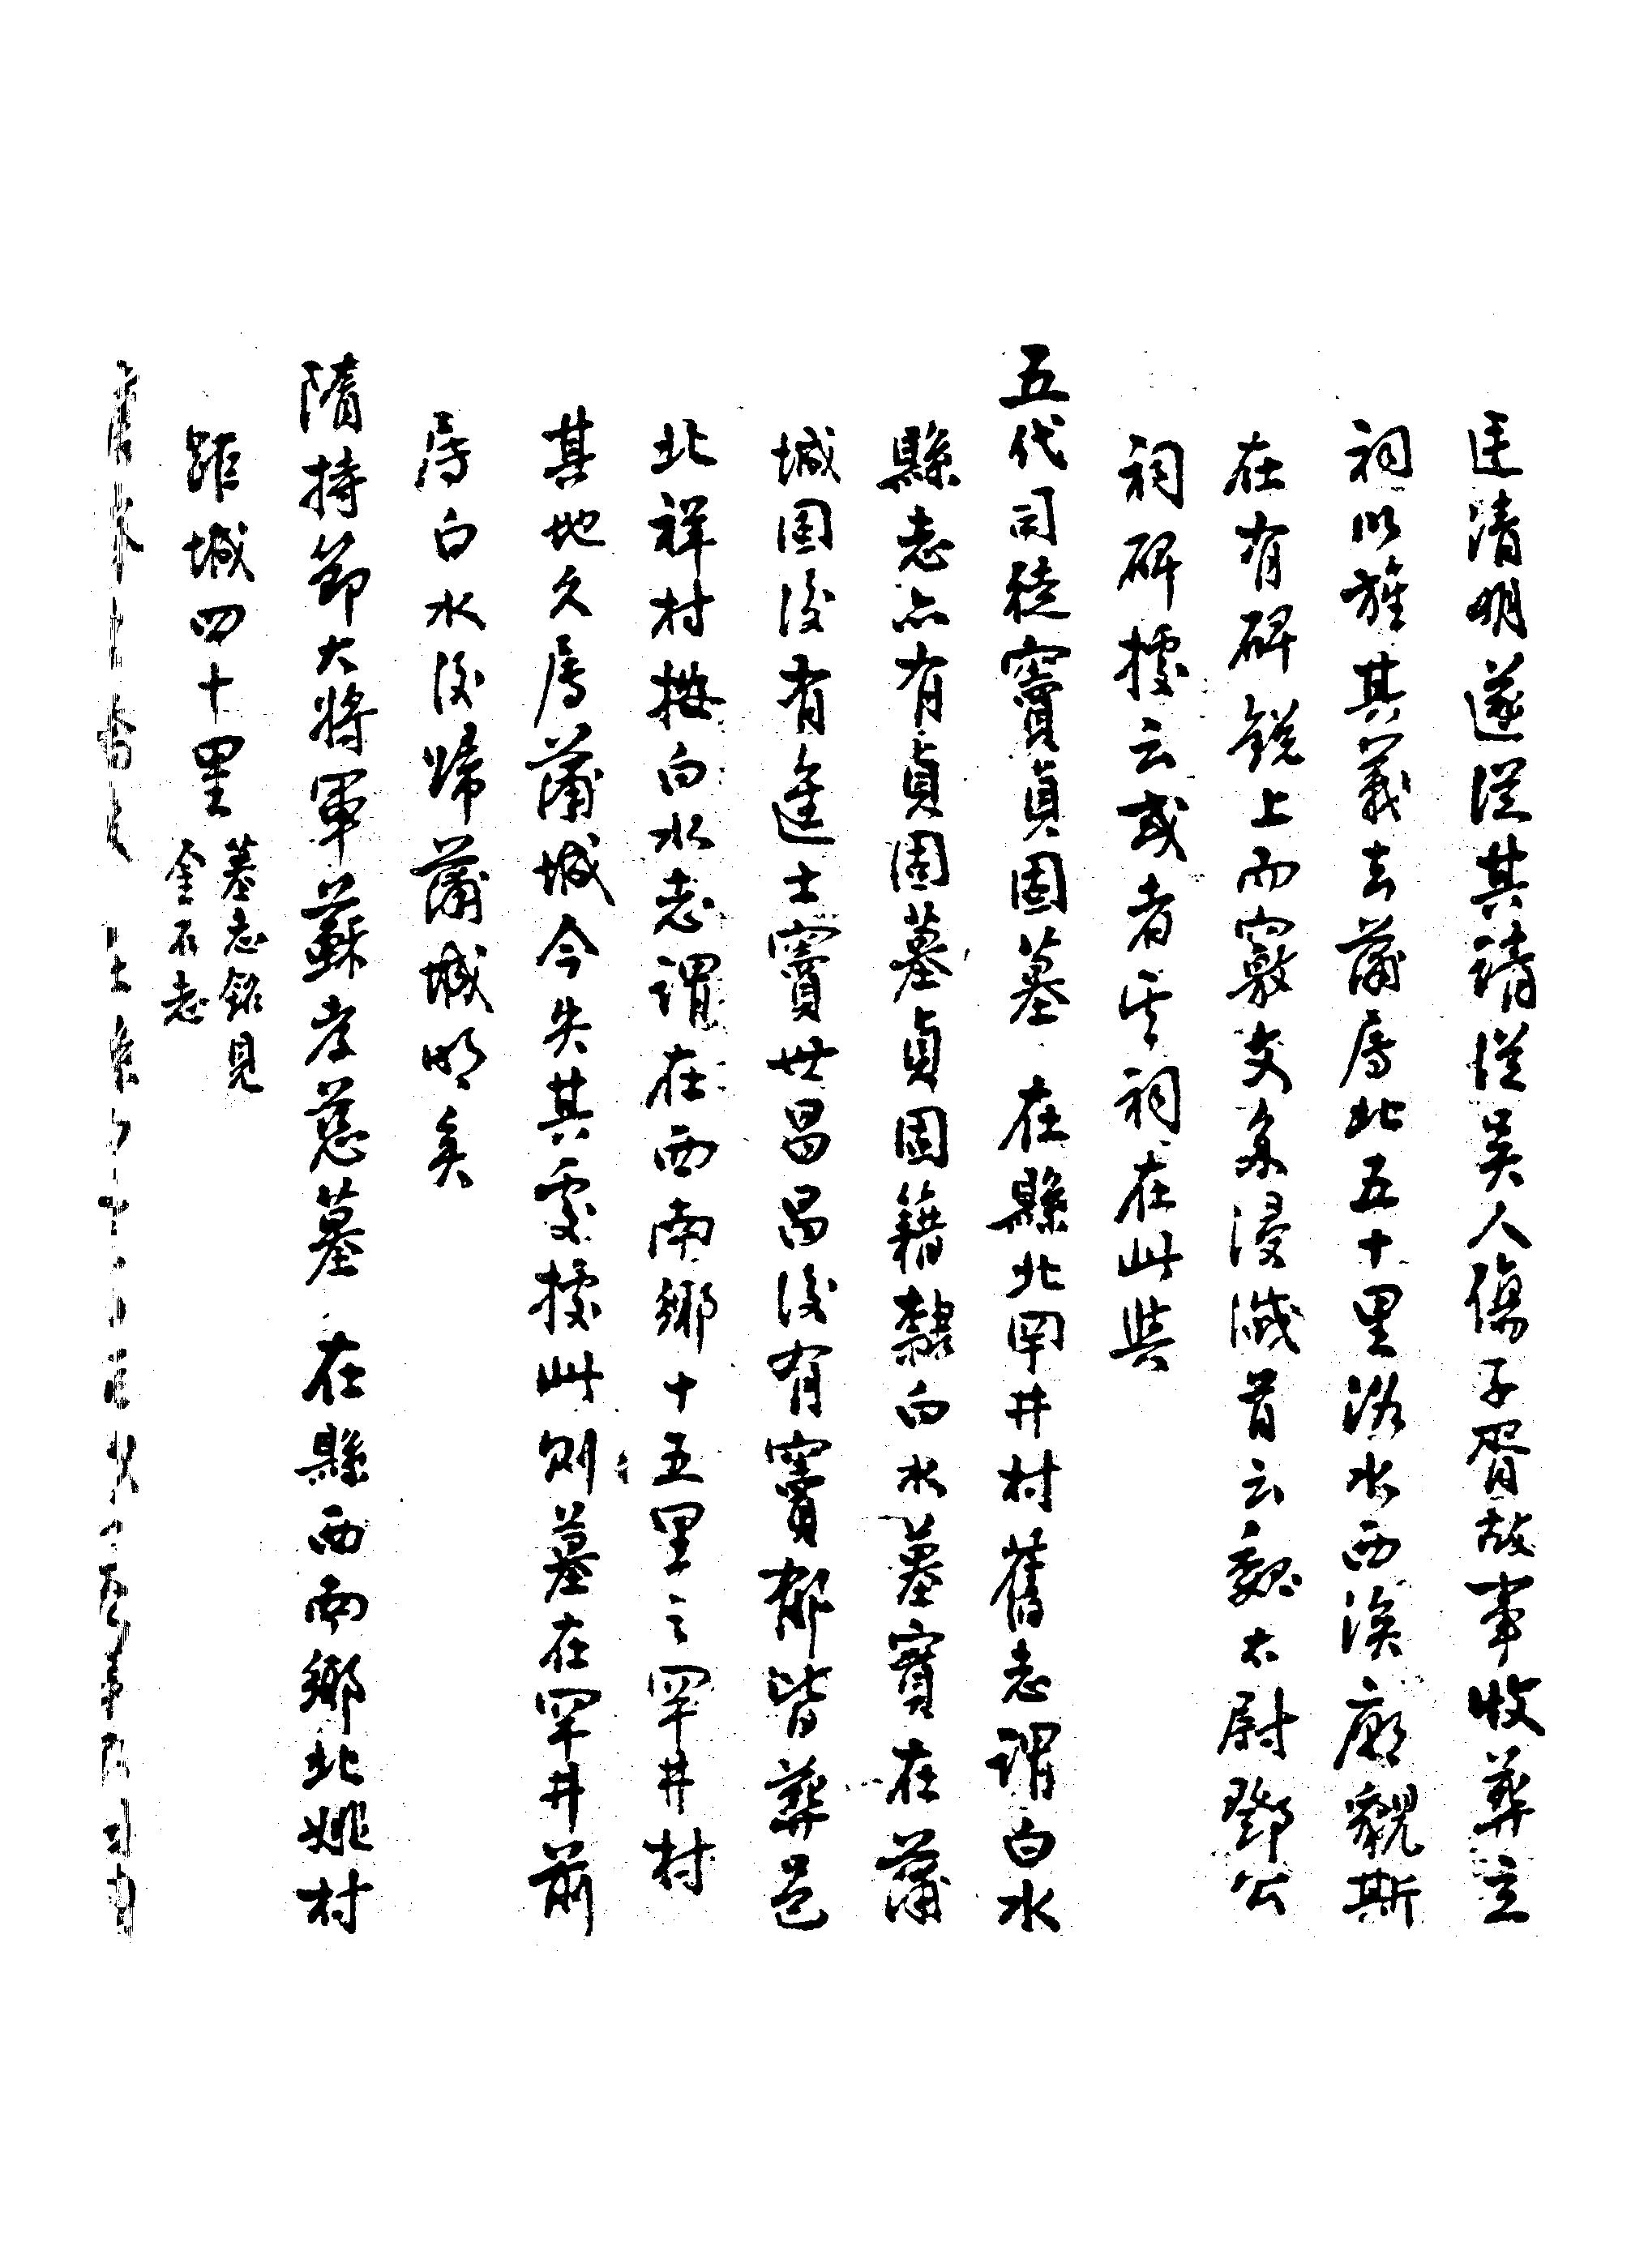 廷清明遂從其請從吳人傷子胥故事收葬立
祠以旌其義去蒲屬北五十里洛水西涘廟貌斯
在有碑銳上而竅文多浸滅首云魏太尉鄧公
祠碑據云或者其祠在此與
五代司徒竇貞固墓 在縣北罕井村舊志謂白水
縣志亦有貞固墓貞固籍隸白水墓實在蒲
城固後有進士竇世昌昌後有竇郁皆葬邑
北祥村按白水志謂在西南鄉十五里之罕井村
其地久屬蒲城今失其處據此則墓在罕井前
屬白水後歸蒲城明矣
隋持節大將軍蘇孝慈墓 在縣西南鄉北姚村
距城四十里
墓志銘見
金石志